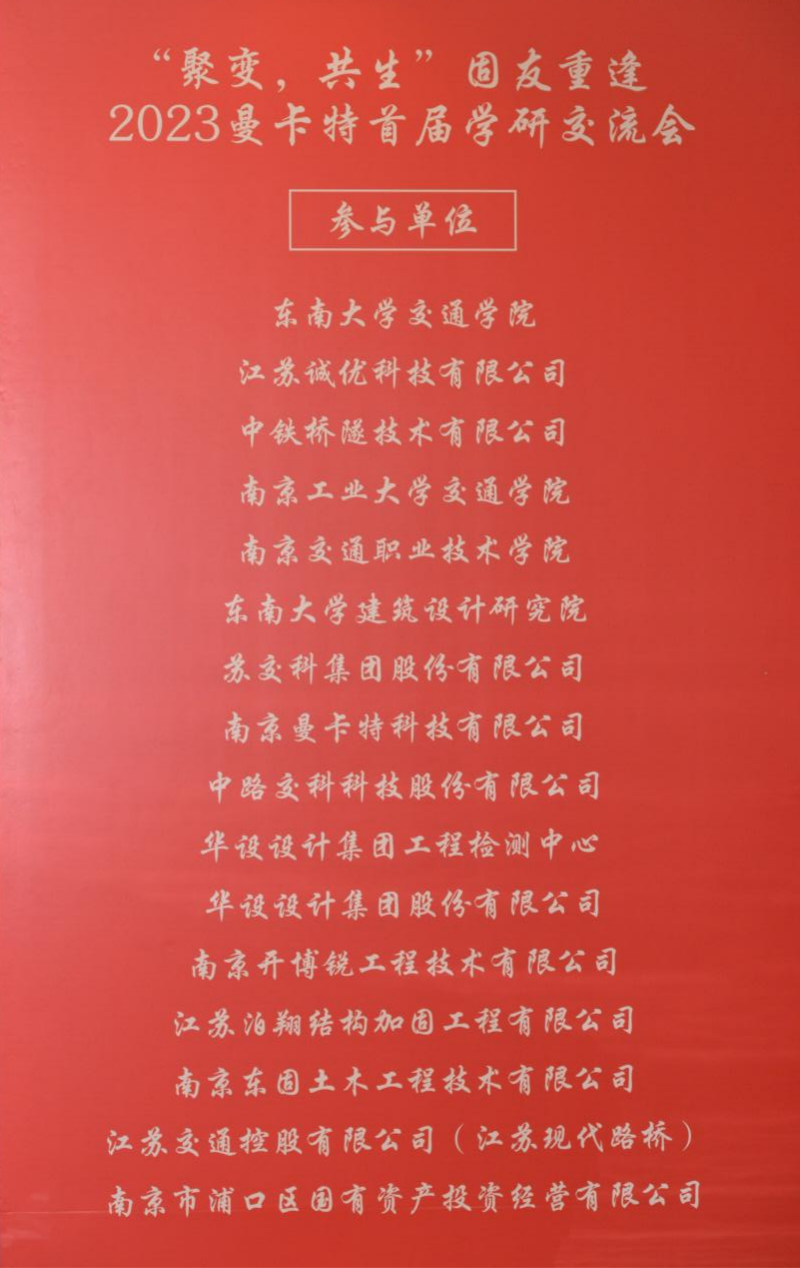 “聚变，共生”固友重逢
2023曼卡特首届学研交流会
参与单位
东南大学交通学院
江苏诚优科技有限公司
中铁桥隧技术有限公司
南京工业大学交通学院
南京交通职业技术学院
东南大学建筑设计研究院
苏交科集团股份有限公司
南京曼卡特科技有限公司
中路交科科技股份有限公司
华设设计集团工程检测中心
华设设计集团股份有限公司
南京开博锐工程技术有限公司
江苏泊翔结构加固工程有限公司
南京东固土木工程技术有限公司
江苏交通控股有限公司（江苏现代路桥）
南京市浦口区国有资产投资经营有限公司